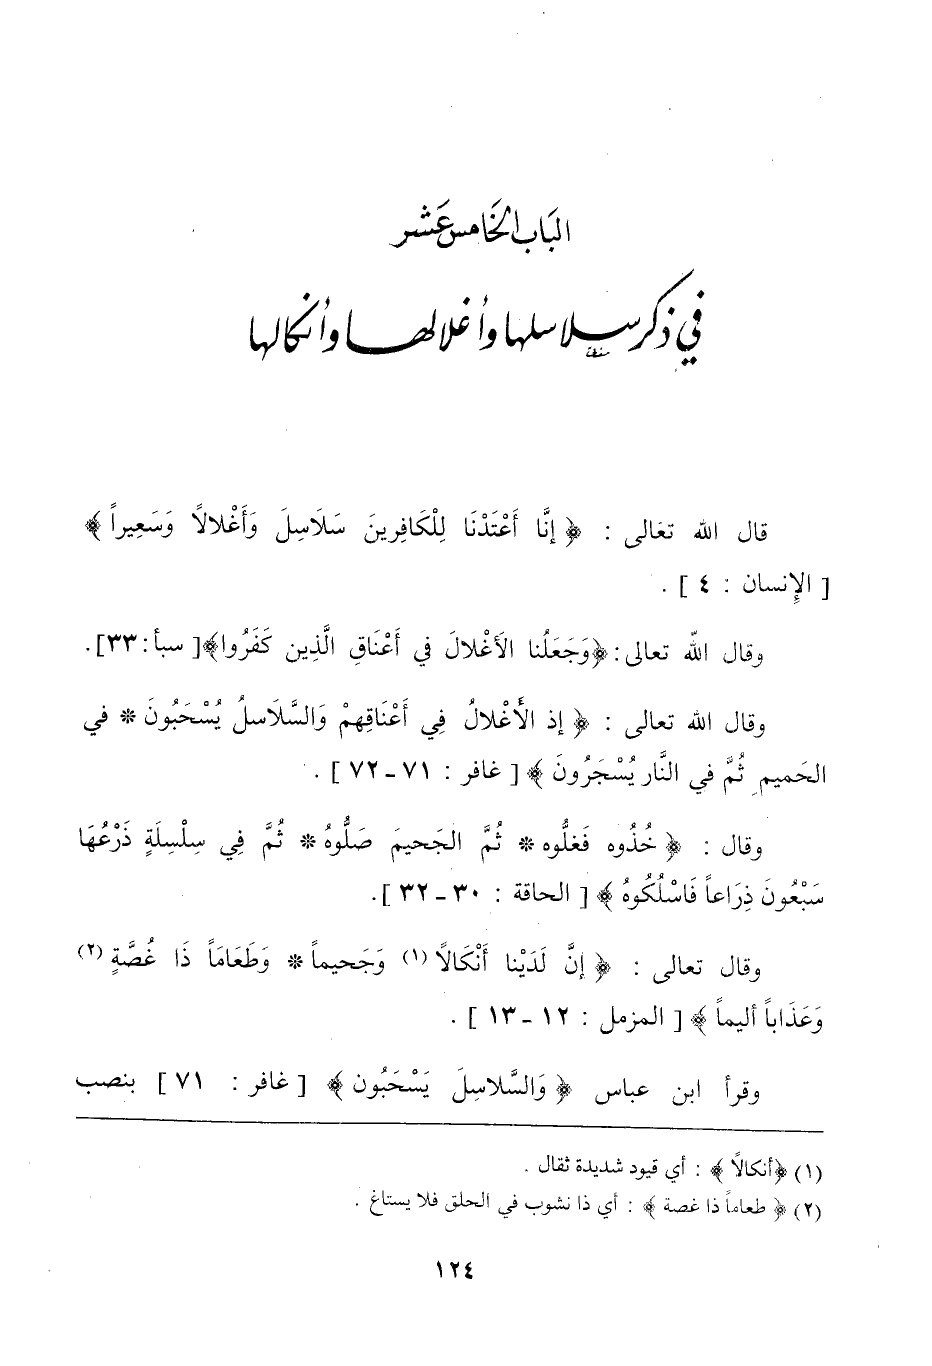 الباب الخامس عشر
في ذكر سلاسلها وأغلالها وأنكالها
قال الله تعالى : ﴿ إِنَّا أَعْتَدْنَا لِلْكَافِرِينَ سَلَاسِلَ وَأَغْلالًا وَسَعِيراً ﴾
[ الإِنسان : ٤ ] .
وقال اللّه تعالى : ﴿وَجَعَلْنا الأَغْلالَ في أَعْنَاقِ الَّذِين كَفَرُوا﴾ [ سبأ : ٣٣].
وقال الله تعالى : ﴿ إذ الأَغْلالُ فِي أَعْنَاقِهِمْ وَالسَّلَاسلُ يُسْحَبُونَ * في
الحَميمِ ثُمَّ في النَّار يُسْجَرُونَ ﴾ [ غافر : ٧١ - ٧٢ ] .
وقال : ﴿ خُذُوه فَغلُّوه * ثُمَّ الجَحيمَ صَلُّوهُ * ثُمَّ فِي سِلْسِلَةٍ ذَرْعُهَا
سَبْعُونَ ذِرَاعاً فَاسْلُكُوهُ ﴾ [ الحاقة : ٣٠ - ٣٢ ].
وقال تعالى : ﴿ إنَّ لَدَيْنا أَنْكَالًا (١) وَجَحيماً * وَطَعَامَاً ذَا غُصَّةٍ (٢)
وَعَذَاباً أليماً ﴾ [ المزمل : ١٢ - ١٣ ] .
وقرأ ابن عباس ﴿ وَالسَّلاسِلَ يَسْحَبُون ﴾ [ غافر : ٧١ ] بنصب
(١) ﴿أنكالًا ﴾ : أي قيود شديدة ثقال .
(٢) ﴿ طعاماً ذا غصة ﴾ : أي ذا نشوب في الحلق فلا يستاغ .
١٢٤